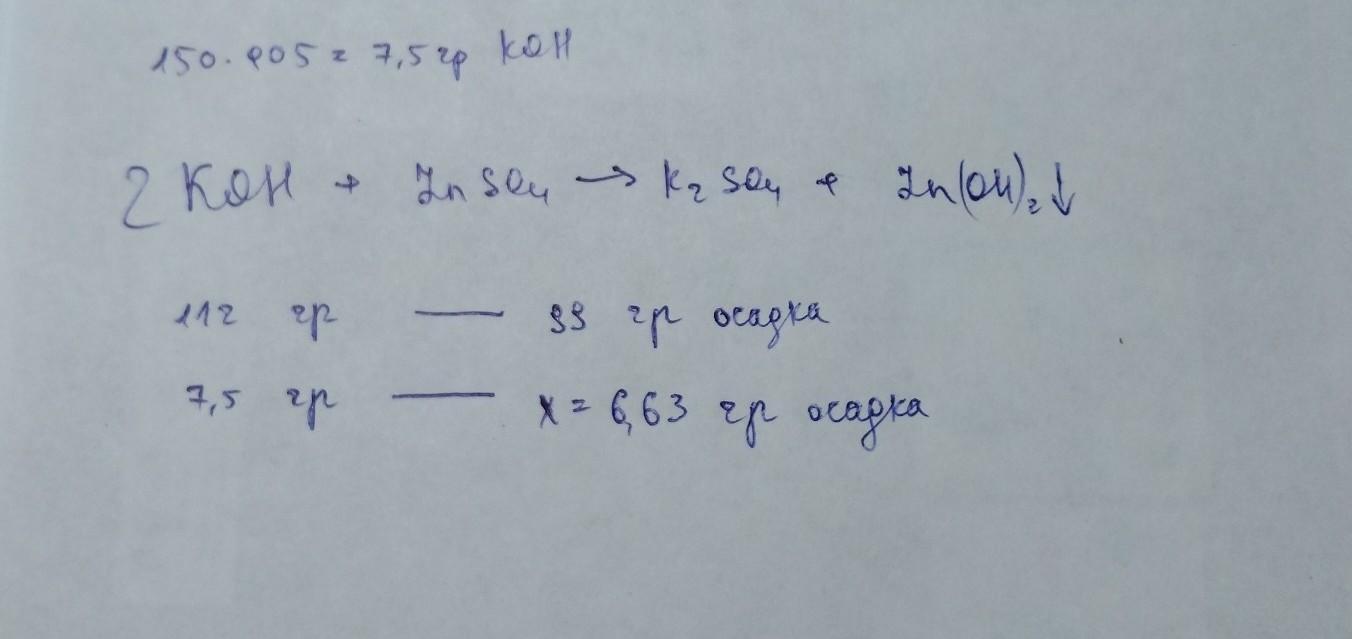 150·0,05 = 7,5 гр KOH
2 KOH + ZnSO₄ → K₂SO₄ + Zn(OH)₂↓
112 гр — 99 гр осадка
7,5 гр — x = 6,63 гр осадка